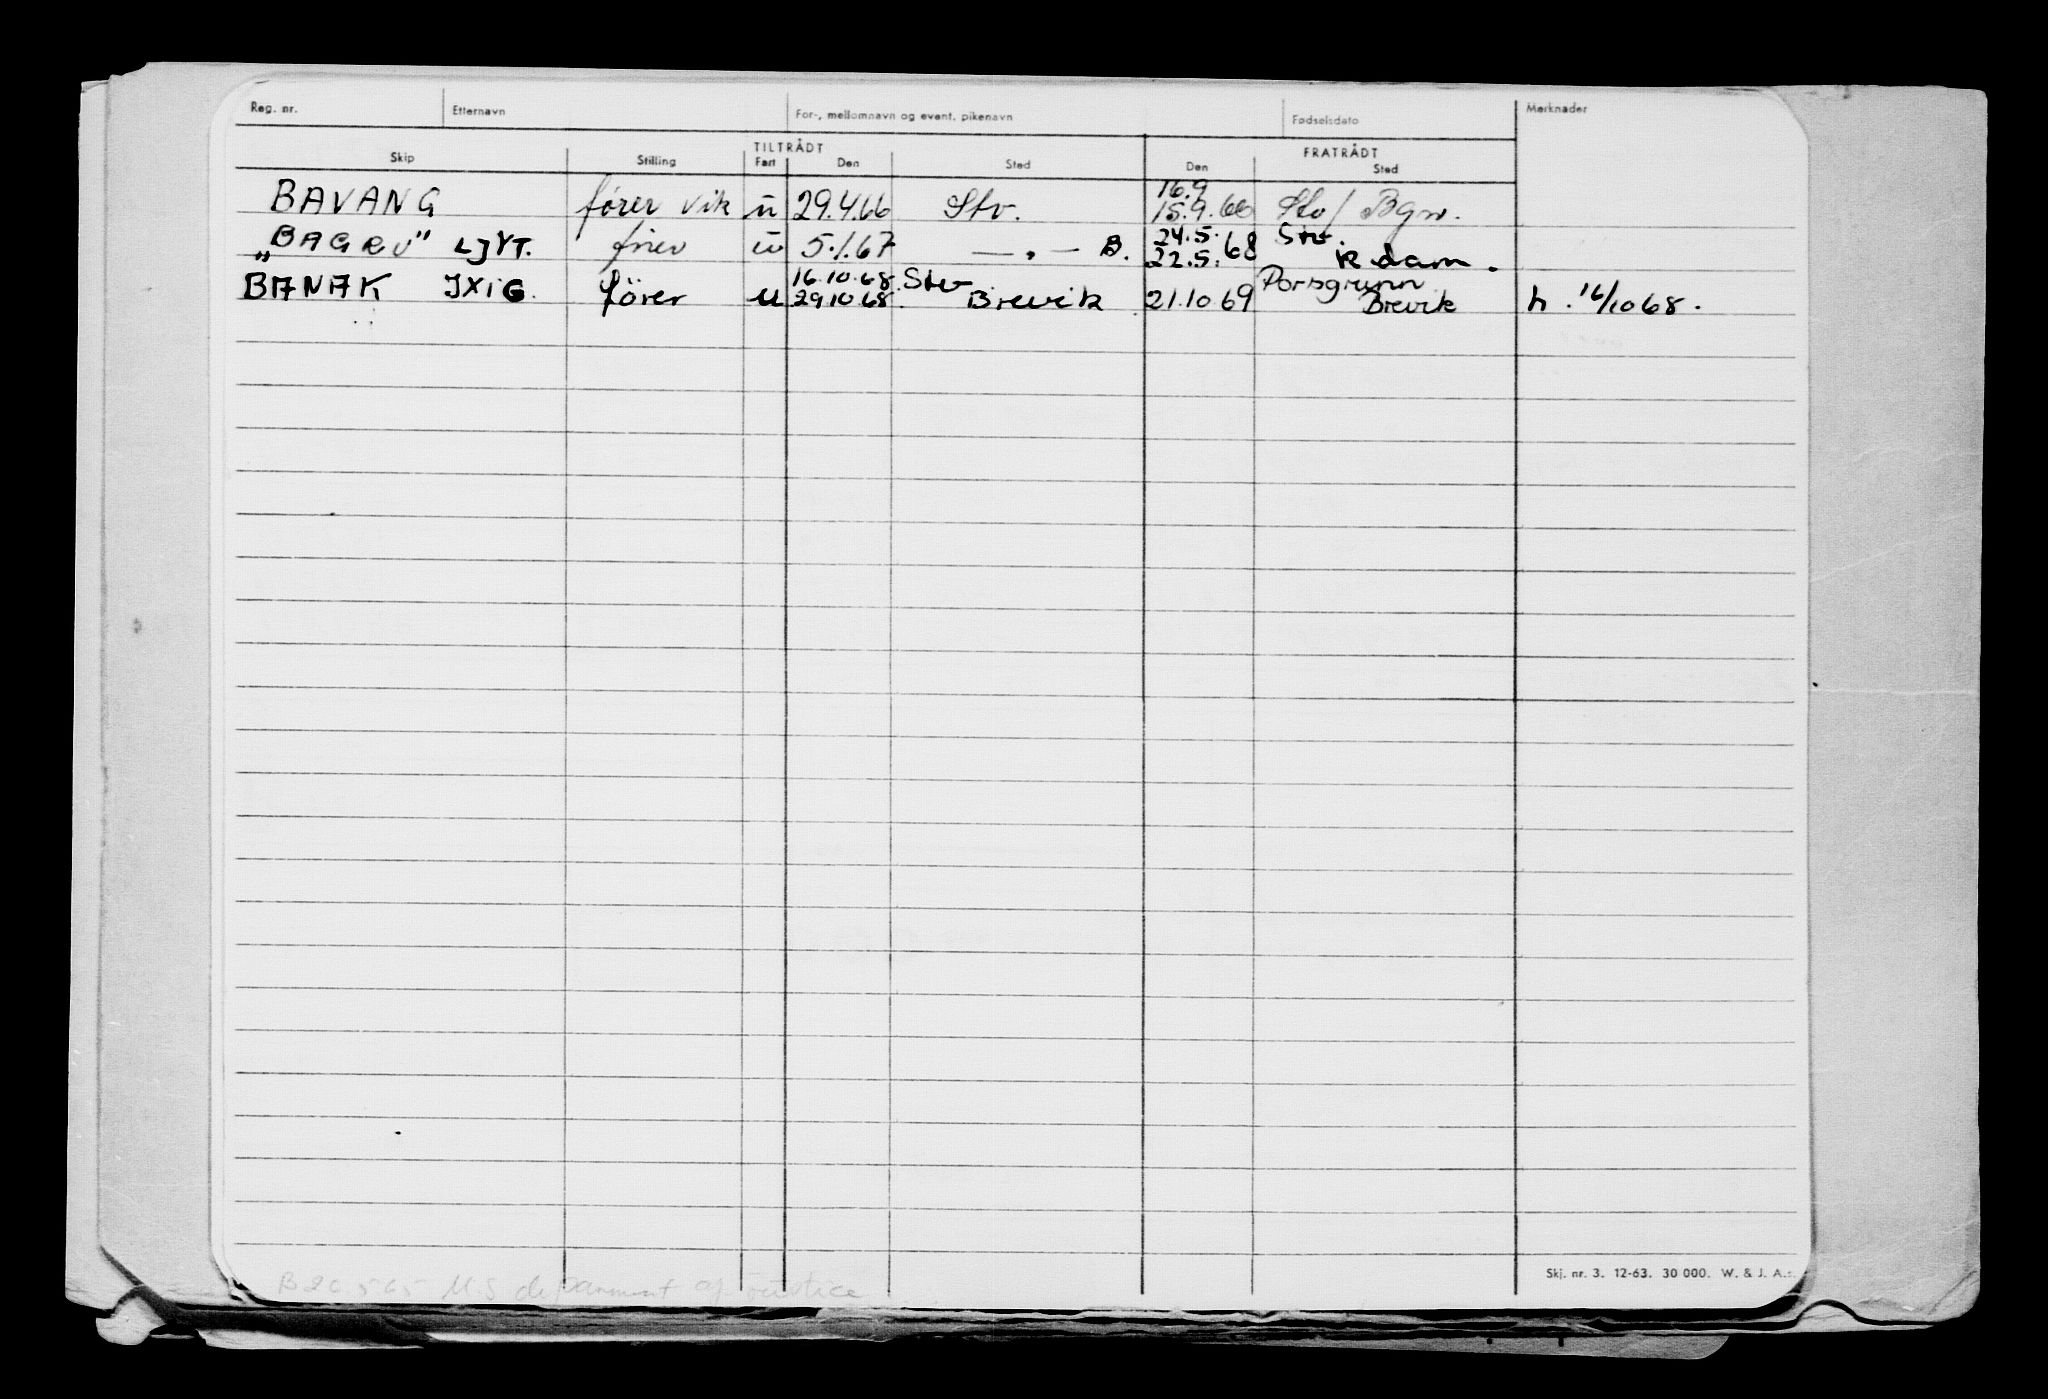 Reg. nr. Etternavn For-, mellomnavn og event. pikenavn Fødselsdato Merknader
TILTRÅDT FRATRÅDT
Skip Stilling Fart Den Sted Den Sted
16.9
BAVANG fører vik u 29.4.66 Stv. 15.9.66 Stv / Bgn.
24.5. Stv.
"BAGRU" LJYT. fører u 5.1.67 — " — B. 22.5.68 R dam.
16.10.68. Stv Porsgrunn
BANAK JXIG. fører u 29.10.68. Brevik 21.10.69 Brevik h. 16/10 68.
Skj. nr. 3. 12-63. 30 000. W. & J. A.s.
B 20 565 U.S department of justice